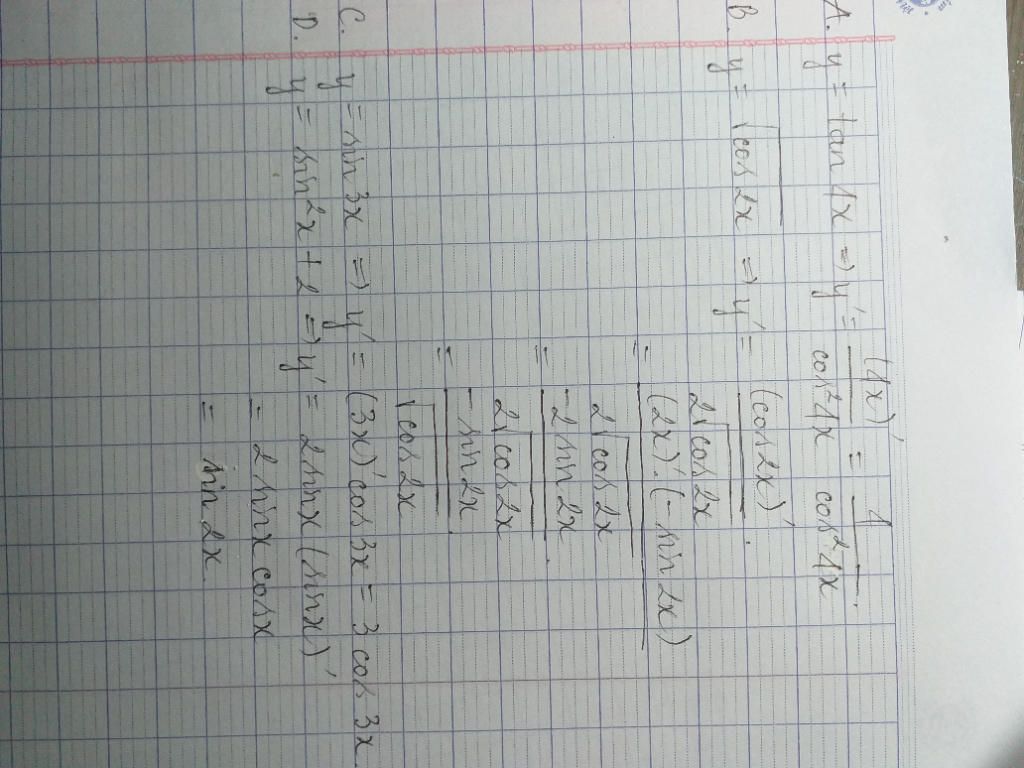 A. y = tan 4x => y' = (4x)' / cos²4x = 4 / cos²4x.
B. y = √cos2x => y' = (cos2x)' / 2√cos2x.
= (2x)'.(-sin2x) / 2√cos2x
= -2sin2x / 2√cos2x.
= -sin2x / √cos2x
C. y = sin3x => y' = (3x)'cos3x = 3cos3x
D. y = sin²x + 2 => y' = 2sinx(sinx)'
= 2sinxcosx
= sin2x.